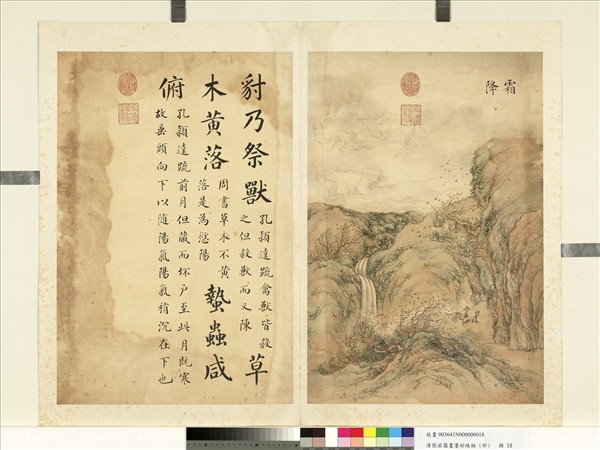 霜
降
豺乃祭獸
孔穎達疏禽獸皆殺
之但殺獸而又陳
草
木黃落
周書草木不黃
落是為愆陽
蟄蟲咸
俯
孔穎達疏前月但藏而坏戶至此月既寒
故垂頭向下以隨陽氣陽氣稍沉在下也
故畫 003641N000000014
冊 18